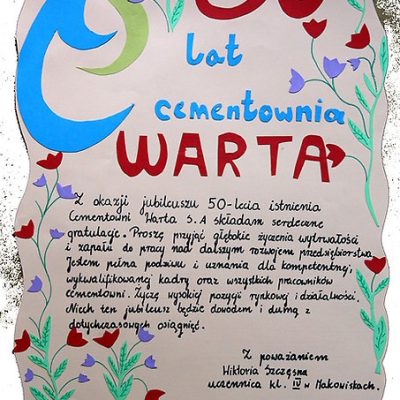 50
lat
cementownia
WARTA
Z okazji jubileuszu 50-lecia istnienia
Cementowni Warta S.A składam serdeczne
gratulacje. Proszę przyjąć głębokie życzenia wytrwałości
i zapału do pracy nad dalszym rozwojem przedsiębiorstwa.
Jestem pełna podziwu i uznania dla kompetentnej,
wykwalifikowanej kadry oraz wszystkich pracowników
cementowni. Życzę wysokiej pozycji rynkowej i działalności.
Niech ten jubileusz będzie dowodem i dumą z
dotychczasowych osiągnięć.
Z poważaniem
Wiktoria Szczęsna
uczennica kl. IV w Makowiskach.